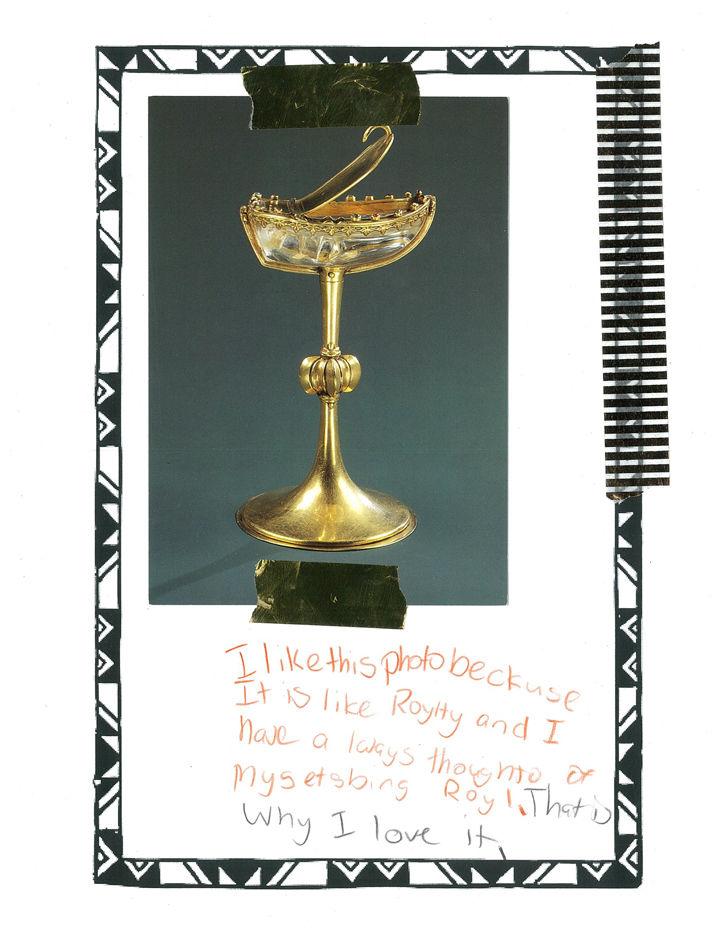 I like this photo beckuse
It is like Roylty and I
have a lways thoughto of
Mysetsbing Royl. That is
Why I love it,